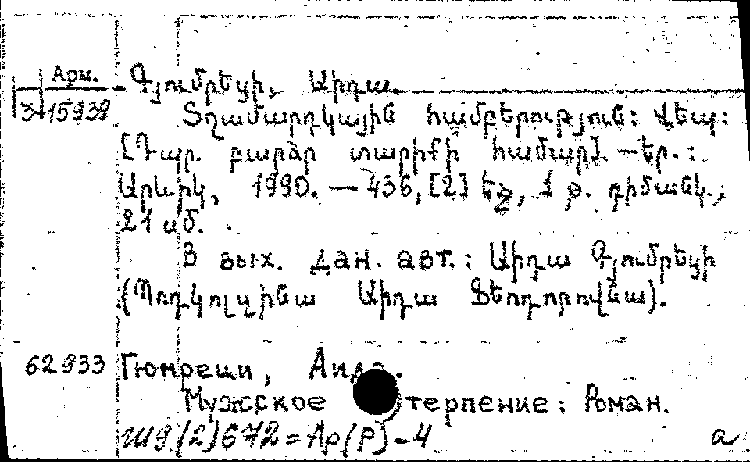 Арм. Գյումրեցի, Աիդա.
3-15939 Տղամարդկային համբերություն: Վեպ:
[Դպր. բարձր տարիքի համար]. — Եր.:
Արևիկ, 1990. — 436, [2] էջ, 1 թ. դիմանկ.;
21 սմ.
В вых. дан. авт.: Աիդա Գյումրեցի
(Պոդկոլզինա Աիդա Ֆեոդորովնա).
62933 Гюмреци, Аида.
Мужское терпение: Роман.
Ш9(2)672=Ар(Р)-4 а